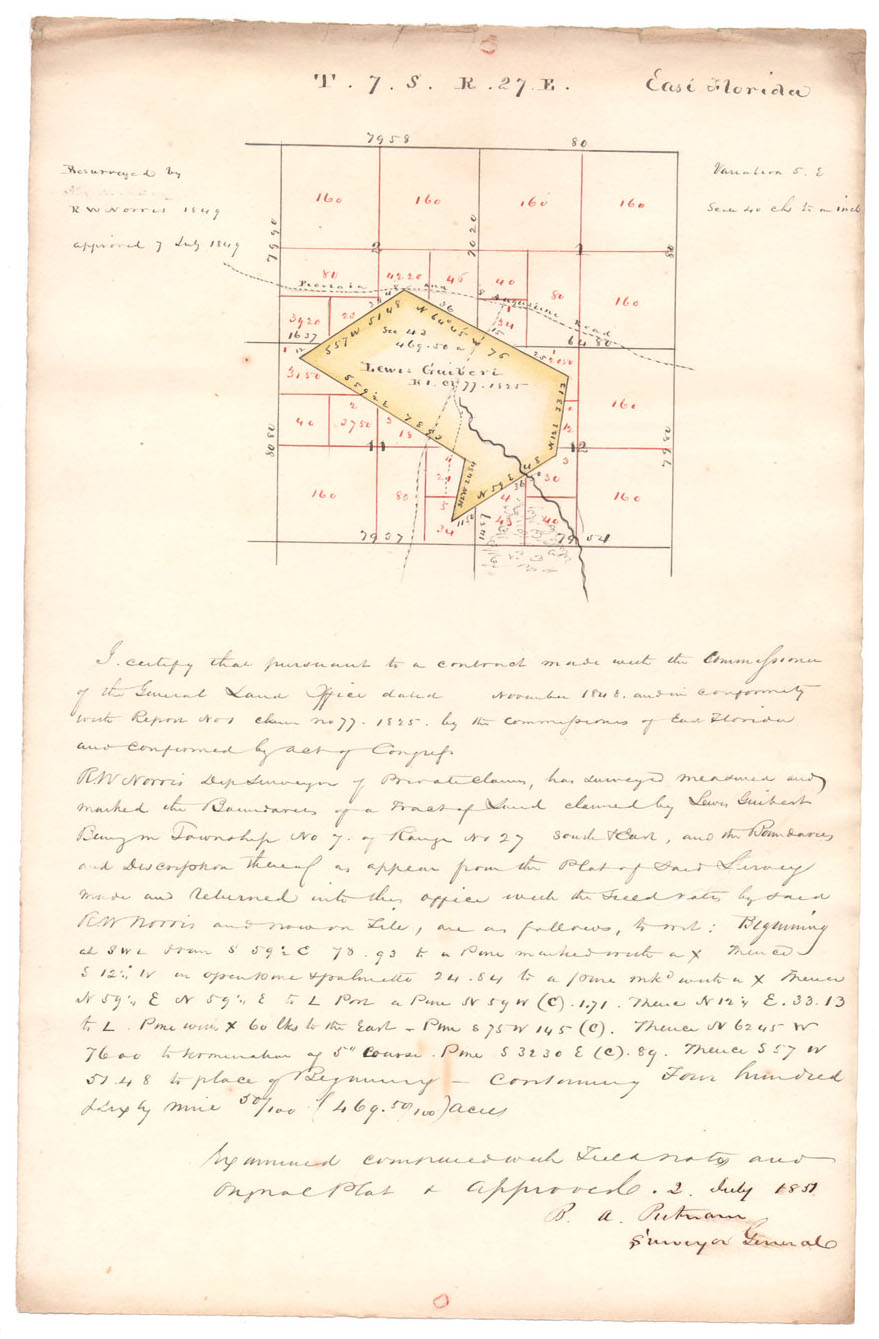 T. 7. S. R. 27 E. East Florida
Resurveyed by
R W Norris 1849
approved 7 July 1849
Variation 5. E
Scale 40 chs to an inch
7958 80
7990
7020
80
160 160 160 160
2 1
80 4220 46 40 80 160
Picolata and S Augustine Road
3920
1637
6480
S 57 W 51 48
N 64°45 W 76
Sec 43
469.50 a
Lewis Guibert
R 1. Cl 77. 1825
3150
S 59½ E 78 93
N 12½ 33 13
160
40 2 3750 3 18
8080
11 12
7980
S 12 W 24 84
N 59 E 45
160 80 4 5 34
4 43 40 30
160
7937 7954
I certify that pursuant to a contract made with the Commissioner
of the General Land Office dated November 1848. and in conformity
with Report No 1 claim no 77. 1825. by the commissioners of East Florida
and confirmed by act of Congress
R.W Norris Dep Surveyor of Private Claims, has surveyed measured and
marked the Boundaries of a Tract of Land claimed by Lewis Guibert
Being in Township No 7. of Range No 27 South & East, and the Boundaries
and Description thereof as appear from the Plat of said Survey
made and returned into this office with the Field Notes by said
R.W Norris and now on File, are as follows, to wit: Beginning
at S 59½ E 78.93 to a Pine marked with a X Thence
S 12¼ W in open pine & palmetto 24.84 to a pine mkd with a X Thence
N 59¼ E N 59¼ E to L Post a Pine N 59 W (C). 1.71. Thence N 12¼ E. 33.13
to L. Pine with X 60 lks to the East - Pine S 75 W 145 (C). Thence N 6245 W
76.00 to termination of 5th Course. Pine S 3230 E (C). 89. Thence S 57 W
51.48 to place of Beginning - Containing Four hundred
& Sixty nine 50/100 (469.50/100) acres
Examined compared with Field notes and
Original Plat & Approved. 2. July 1851
B. A. Putnam
Surveyor General